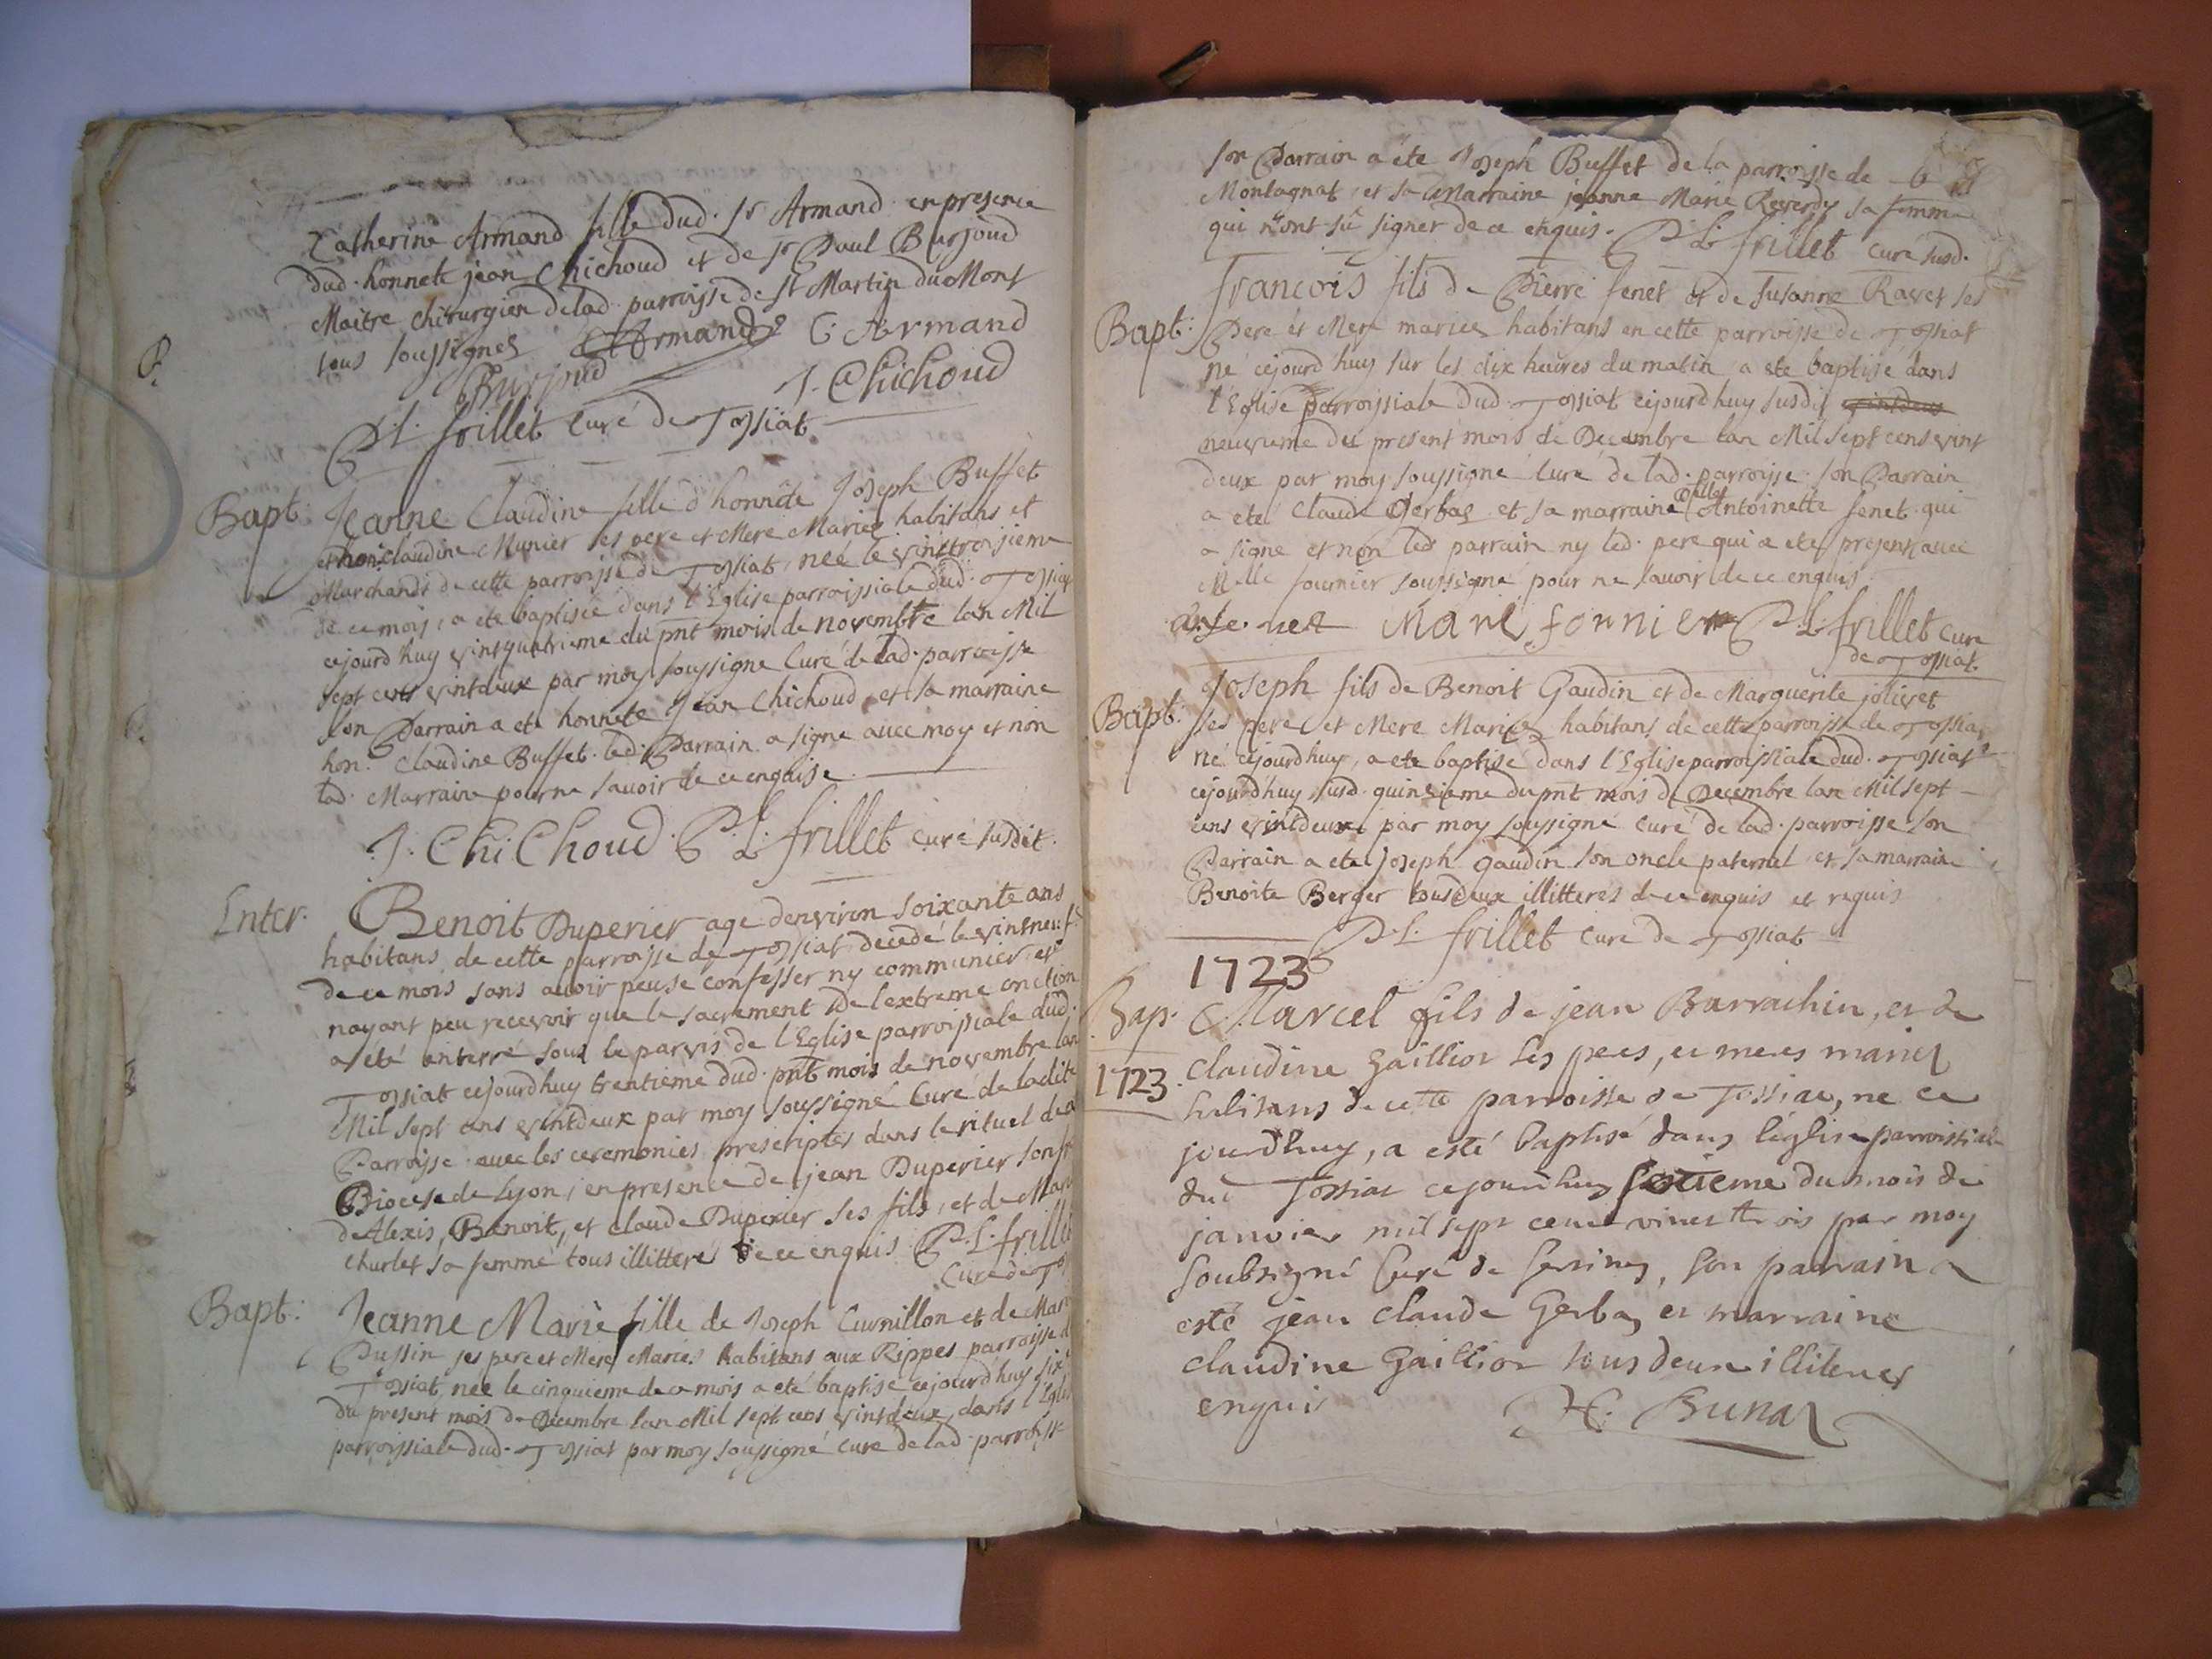 Catherine Armand fille dud. Sr Armand en presence
dud. honnete jean Chichoud et de Sr Paul Burjoud
Maitre chirurgien delad. parroisse de St Martin du Mont
tous soussignes Armand C. Armand
Burjoud J. Chichoud
P. L. frillet curé de Tossiat
Bapt: Jeanne Claudine fille d'honnête Joseph Buffet
et hon. claudine Munier ses pere et Mere Mariez habitans et
Marchands de cette parroisse de Tossiat, née le vinttroisieme
de ce mois, a ete baptisée dans l'Eglise parroissiale dud. Tossiat
cejourd'huy vintquatrieme du pnt mois de novembre lan Mil
sept cens vintdeux par moy soussigne Curé de lad. parroisse
son Parrain a ete honnete Jean Chichoud, et sa marraine
hon. Claudine Buffet. led. Parrain a signe avec moy et non
lad. Marraine pour ne savoir de ce enquise
J. ChiChoud. P. L. frillet curé susdit.
Enter. Benoit Duperier age denviron soixante ans
habitans de cette parroisse de Tossiat decedé le vintneuf
de ce mois sans avoir peu se confesser ny communier, et
nayant peu recevoir que le sacrement de l'extreme onction
a été enterré sous le parvis de l'Eglise parroissiale dud.
Tossiat cejourdhuy trentieme dud. pnt mois de novembre lan
Mil sept cens vintdeux par moy soussigné Curé de ladite
Parroisse avec les ceremonies prescriptes dans le rituel de
Diocese de Lyon, en presence de jean Duperier son
de Alexis, Benoit, et claude Duperier ses fils, et de
Charlet sa femme tous illitteré de ce enquis P. L. frillet
Curé de
Bapt: Jeanne Marie fille de Joseph Curnillon et de
Pussin ses pere et Mere Mariez habitans aux Rippes parroisse d
Tossiat, née le cinquieme de ce mois a eté baptise cejourd'huy six
du present mois de Decembre lan Mil sept cens vintdeux, dans l'Egli
parroissiale dud. Tossiat par moy soussigné Cure de lad. parroisse
son Parrain a éte Joseph Buffet de la parroisse de
Montagnat, et sa Marraine jeanne Marie Reverdy sa femme
qui n'ont sû signer de ce enquis. P. L. frillet curé susd.
Bapt: francois fils de Pierre fenet et de Susanne Ravet ses
Pere et Mere mariez habitans en cette parroisse de Tossiat
né cejourd'huy sur les dix heures du matin a ete baptisé dans
l'Eglise parroissiale dud. Tossiat cejourd'huy susdit
neuvieme du present mois de Decembre lan Mil sept cens vint
deux par moy soussigné Curé de lad. parroisse. son Parrain
a eté Claude Gerbas et sa marraine Dlle Antoinette fenet qui
a signe et non led parrain ny led. pere qui a ete present avec
Melle fournier soussigné pour ne savoir de ce enquis
fe net Mari fornier P. L. frillet Curé
de Tossiat.
Bapt: Joseph fils de Benoit Gaudin et de Marguerite jolivet
ses pere et Mere Mariez habitans de cette parroisse de Tossiat
né cejourd'huy, a ete baptise dans l'Eglise parroissiale dud. Tossiat
cejourd'huy susd. quinsieme du pnt mois de Decembre lan Mil sept
cens vintdeux par moy soussigné curé de lad. parroisse son
Parrain a ete Joseph gaudin son oncle paternel et sa marraine
Benoite Berger tous deux illitteres de ce enquis et requis
P. L. frillet Curé de Tossiat
1723
Bap. Marcel fils de jean Barrachin, et de
1723. Claudine Gaillior ses peres, et meres mariez
habitans de cette parroisse de Tossiat, ne ce
jourdhuy, a esté baptisé dans l'église parroissiale
dud Tossiat cejourdhuy sexieme du mois de
janvier mil sept cent vinct trois par moy
soubsigné Curé de , son parrain a
esté jean claude Gerbas et marraine
claudine Gaillior tous deux illiteres
enquis H. Bunaz